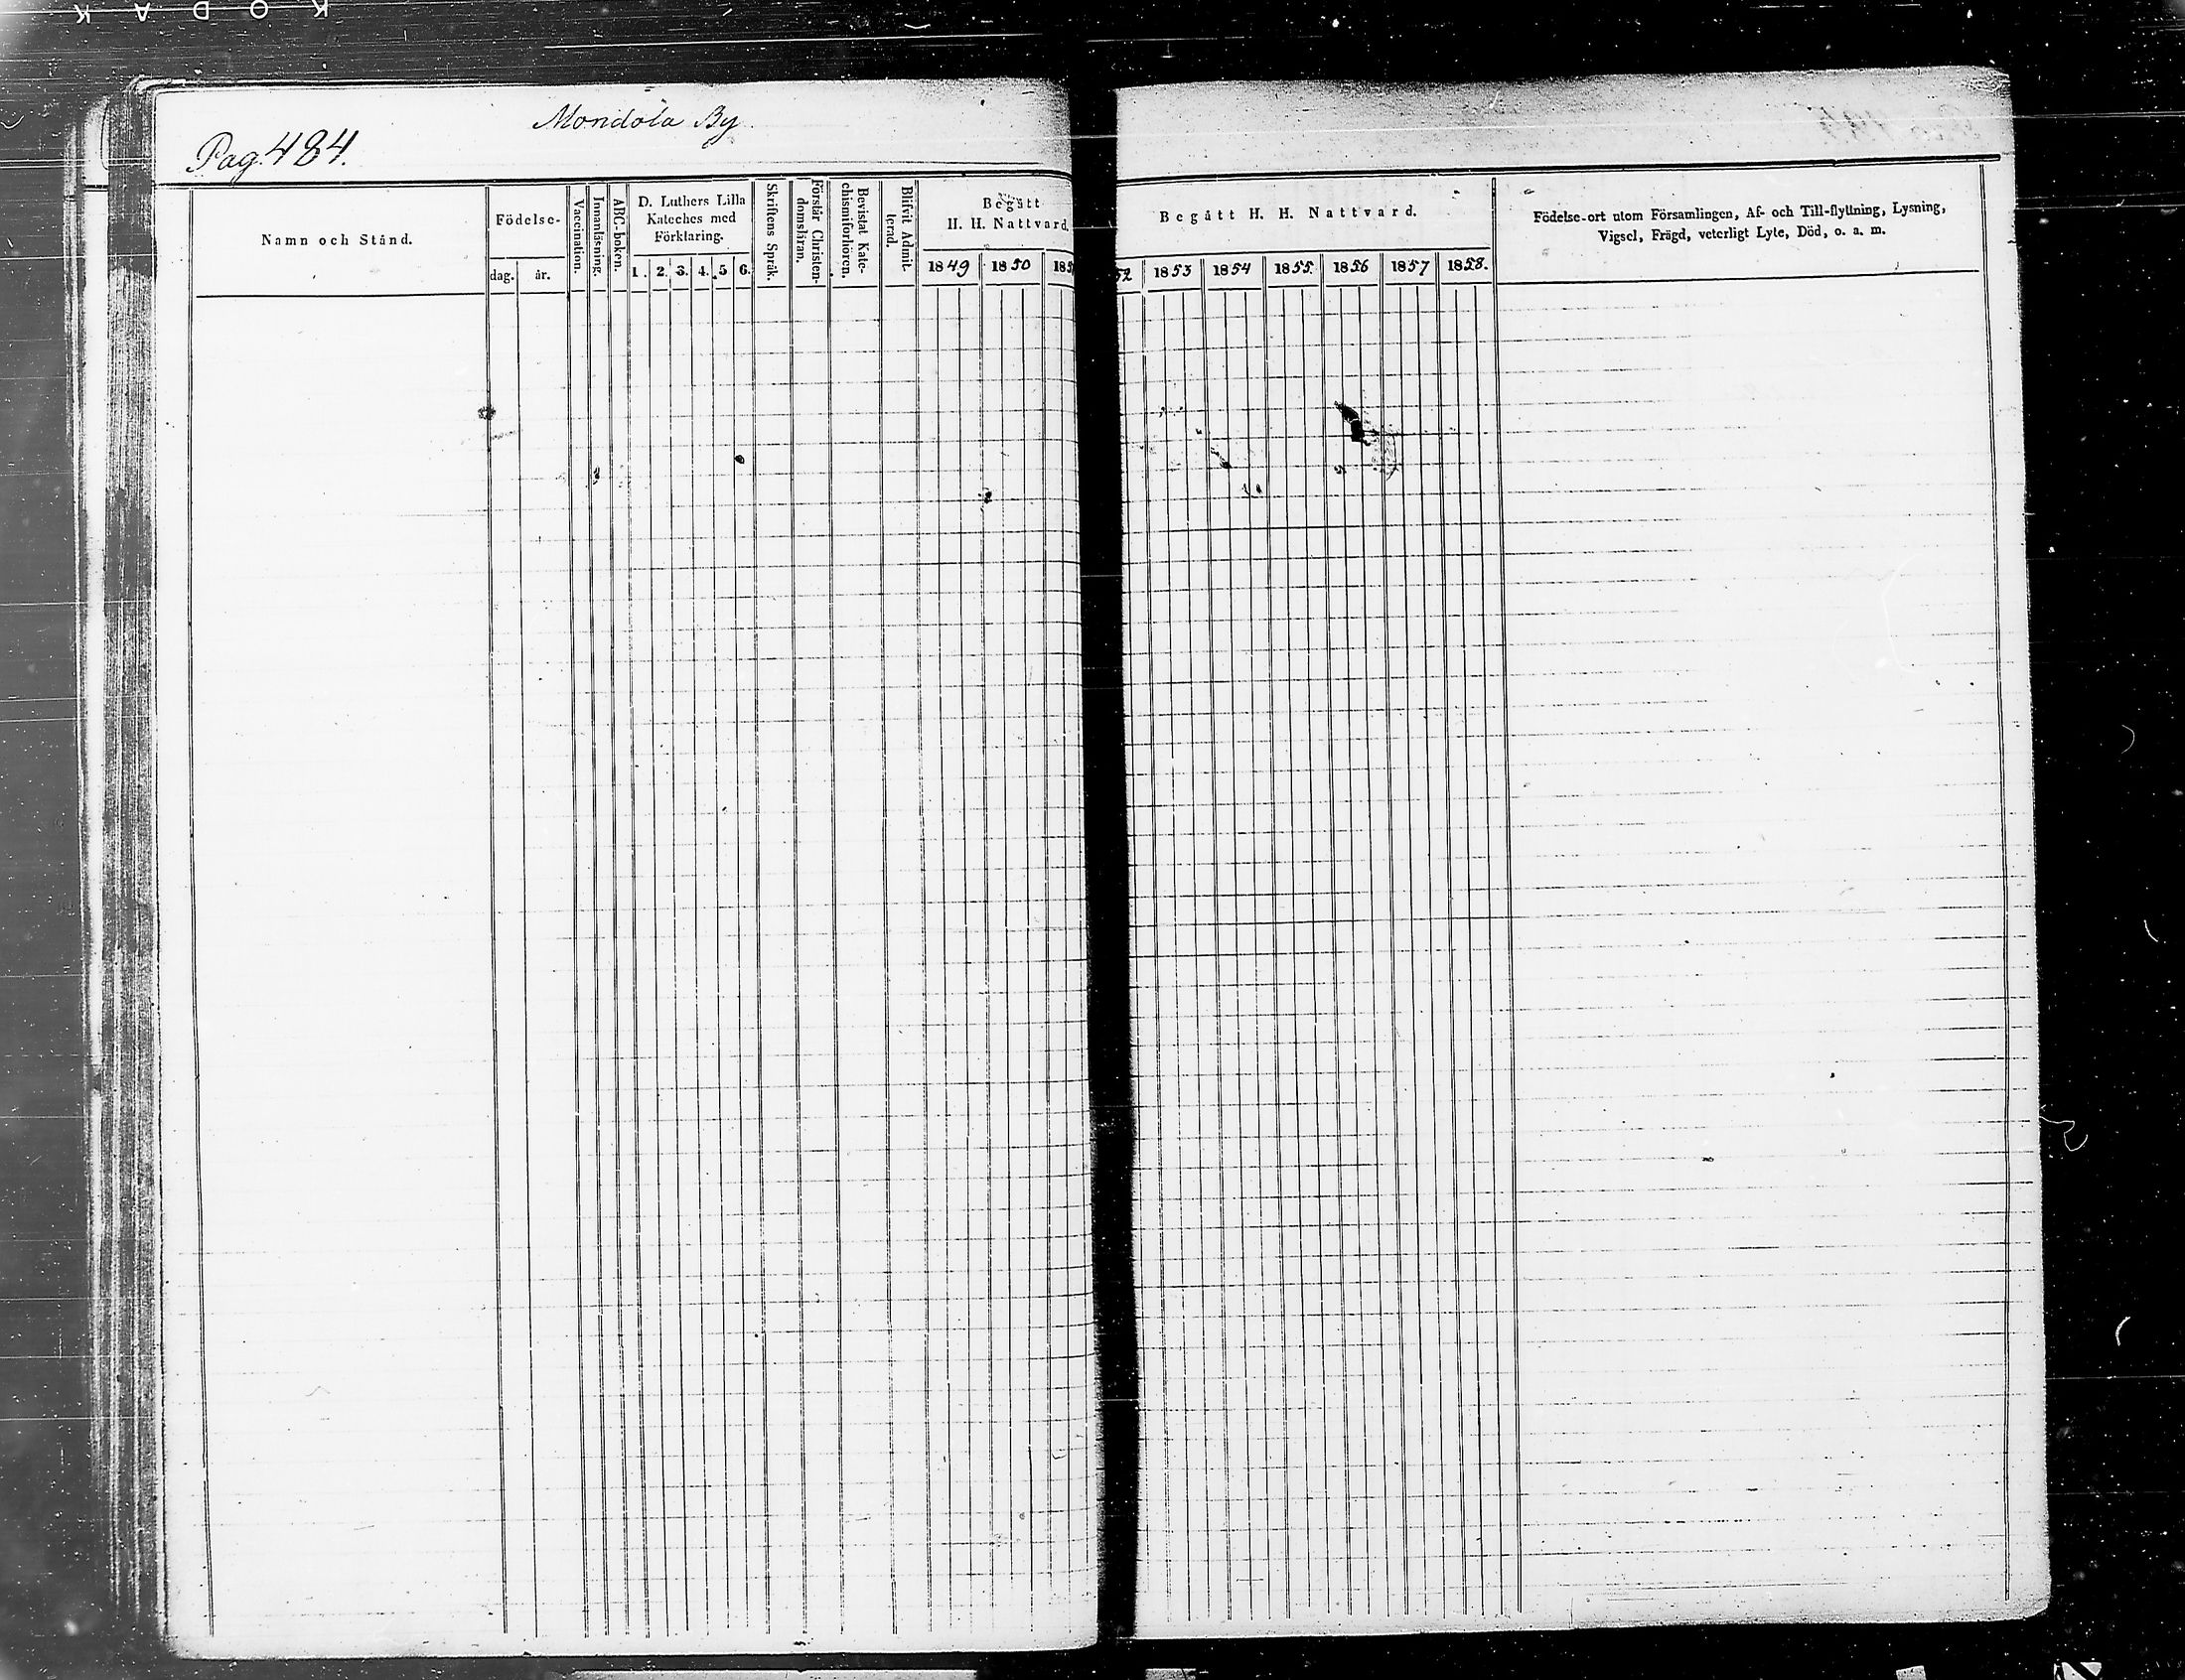 KODAK
Mondola By
Pag. 484.
Namn och Stånd.
Födelse-
dag. år.
Vaccination.
Innanläsning.
ABC-boken.
D. Luthers Lilla
Kateches med
Förklaring.
1. 2. 3. 4. 5 6.
Skriftens Språk.
Förstår Christen-
domsläran.
Bevistat Kate-
chismiförhören.
Blifvit Admit-
terad.
Begått
H. H. Nattvard.
1849 1850 185
Begått H. H. Nattvard.
52 1853 1854 1855 1856 1857 1858.
Födelse-ort utom Församlingen, Af- och Till-flyttning, Lysning,
Vigsel, Frägd, veterligt Lyte, Död, o. a. m.